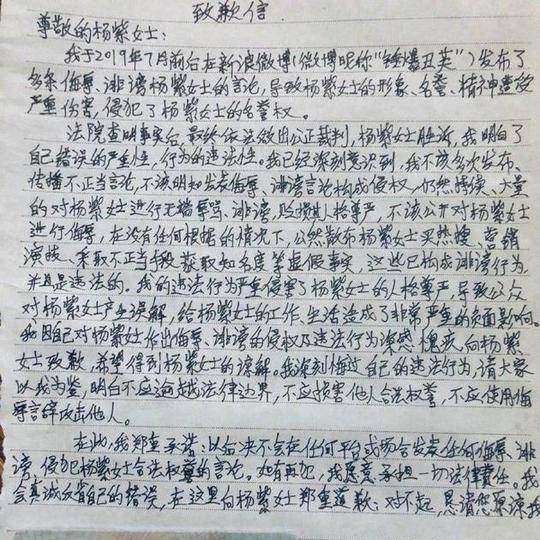 致歉信
尊敬的杨紫女士:
我于2019年7月前台在新浪微博(微博昵称“锤爆丑英”)发布了
多条侮辱、诽谤杨紫女士的言论,导致杨紫女士的形象、名誉、精神遭受
严重伤害,侵犯了杨紫女士的名誉权。
法院查明事实后,最终依法做出公正裁判,杨紫女士胜诉,我明白了
自己错误的严重性,行为的违法性。我已经深刻意识到,我不该多次发布、
传播不正当言论,不该明知发表侮辱、诽谤言论构成侵权,仍然持续、大量
的对杨紫女士进行无端辱骂、诽谤,贬损其人格尊严,不该公开对杨紫女士
进行侮辱,在没有任何根据的情况下,公然散布杨紫女士买热搜、营销
演技、采取不正当手段获取知名度等虚假事实,这些已构成诽谤行为,
并且是违法的。我的违法行为严重侵害了杨紫女士的人格尊严,导致公众
对杨紫女士产生误解,给杨紫女士的工作、生活造成了非常严重的负面影响。
我因自己对杨紫女士作出侮辱、诽谤的侵权及违法行为深感愧疚,向杨紫
女士致歉,希望得到杨紫女士的谅解。我深刻悔过自己的违法行为,请大家
以我为鉴,明白不应逾越法律边界,不应损害他人合法权益,不应使用侮
辱言辞攻击他人。
在此,我郑重承诺:以后决不会在任何平台或场合发表任何侮辱、诽
谤,侵犯杨紫女士合法权益的言论。如有再犯,我愿意承担一切法律责任。我
会真诚反省自己的错误,在这里向杨紫女士郑重道歉:对不起,恳请您原谅我